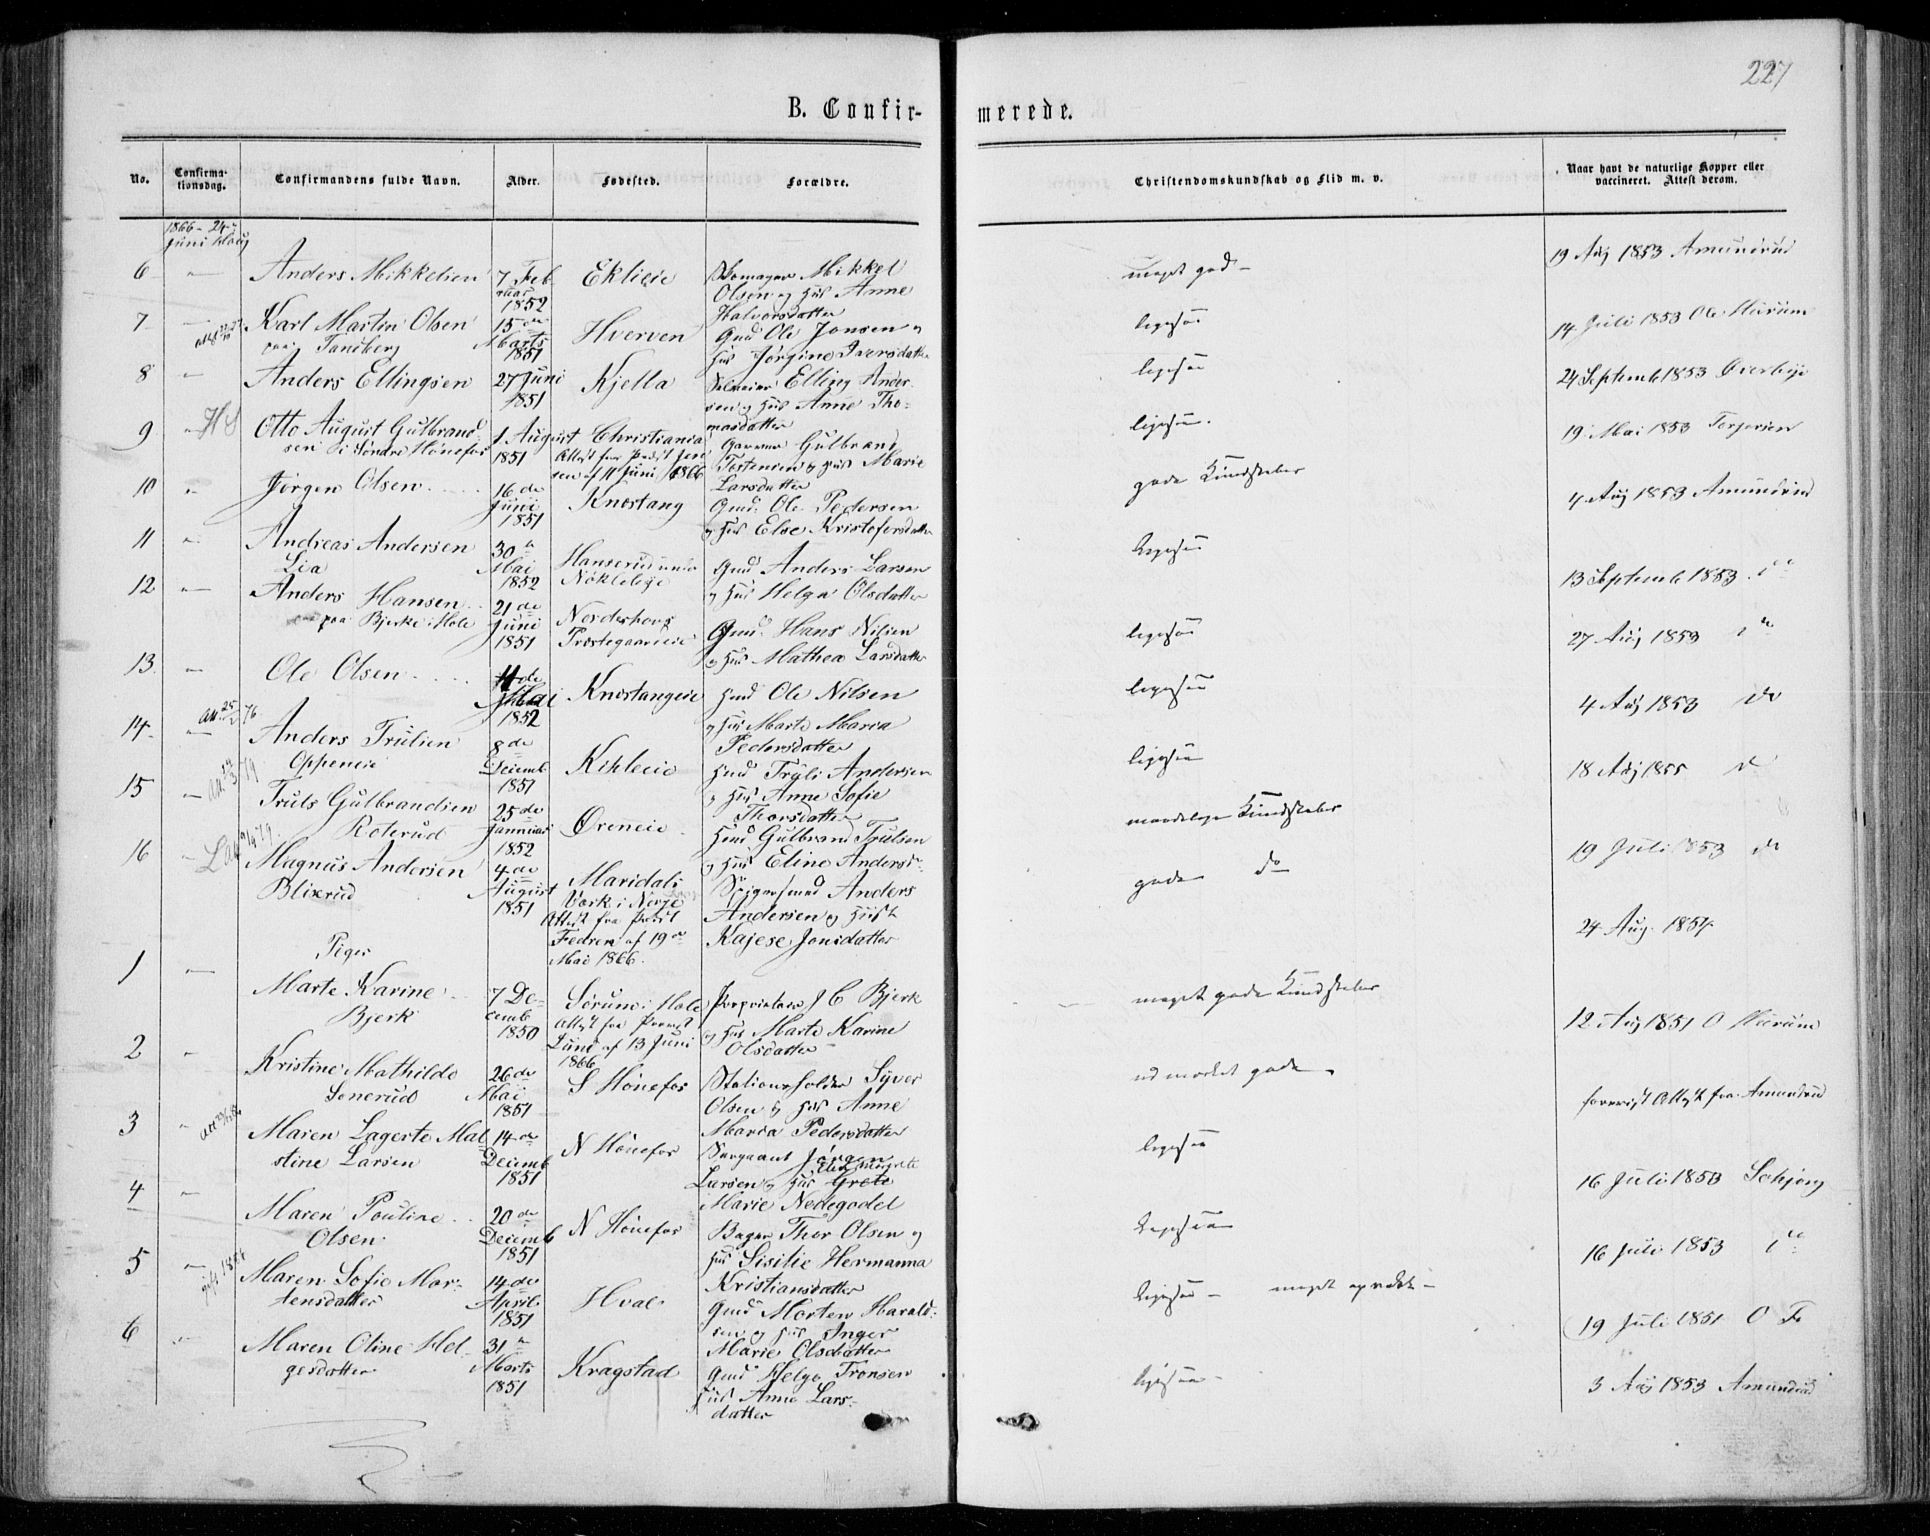 227
B. Confirmerede.
No. Confirmationsdag. Confirmandens fulde Navn. Alder. Fødested. Forældre. Christendomskundskab og Flid m. v. Naar havt de naturlige Kopper eller vaccineret. Attest derom.
1866 - 24
Juni
6 Anders Mikkelsen 7 Februar 1852 Eklieie Mikkel Olsen og Hus Anne Halvorsdatter meget god 19 Aug 1853 Amundrud
7 Karl Martin Olsen paa Tandberg 15de Marts 1851 Hverven Gmd Ole Jonsen og Hus Jørgine Iversdatter ligesaa 14 Juli 1853 Ole Hurum
8 Anders Ellingsen 27 Juni 1851 Kjella Elling Andersen og Hus Anne Thomasdatter ligesaa 24 Septemb 1853 Øverbye
9 Otto August Gulbrandsen i Søndre Hønefos 1 August 1851 Christiania Attest fra Præst Jensen af 11 Juni 1866 Garver Gulbrand Torstensen og Hust Marie Larsdatter ligesaa 19 Mai 1853 Torgersen
10 Jørgen Olsen 16de Juni 1851 Knestang Gmd. Ole Pedersen og Hus Else Kristofersdatter gode Kundskaber 4 Aug 1853 Amundrud
11 Andreas Andersen Lia 30 Mai 1852 Hanserud under Nøklebye Gmd Anders Larsen og Hus Helga Olsdatter ligesaa 13 Septemb 1853 do
12 Anders Hansen paa Bjerke i Hole 21de Juni 1851 Norderhovs Præstegaardeie Gmd. Hans Nilsen og Hus Mathea Larsdatter ligesaa 27 Aug 1853 do
13 Ole Olsen 11de Mai 1852 Knestangeie Hmd Ole Nilsen og Hus Marte Maria Pedersdatter ligesaa 4 Aug 1853 do
14 Anders Trulsen Oppeneie 8de Decemb 1851 Kihleeie Hmd Truls Andersen og Hus Anne Sofie Thorsdatter ligesaa 18 Aug 1855 do
15 Truls Gulbrandsen Roterud 25de Januar 1852 Øreneie Hmd Gulbrand Trulsen og Hus Eline Andersd. maadelige Kundskaber 19 Juli 1853 do
16 Magnus Andersen Blixrud 4de August 1851 Maridals Værk i Norge Attest fra Præst Fearen af 19de Mai 1866. Anders Andersen og Hust Kajese Jonsdatter gode do 24 Aug. 1854
Piger
1 Marte Karine Bjerk 7 December 1850 Sørum i Hole Attest fra Provst Lund af 13 Juni 1866 Proprietær J C Bjerk og Hus Marte Karine Olsdatter meget gode Kundskaber 12 Aug 1851 O Hurum
2 Kristine Mathilde Sonerud 26de Mai 1851 S Hønefos Stationsholder Syver Olsen og Hus Anne Maria Pedersdatter udmærket gode forevist Attest fra Amundrud
3 Maren Lagerte Malstine Larsen 14de Decemb 1851 N Hønefos Sergeant Jørgen Larsen og Hus Grete Marie Nedegodel ligesaa 16 Juli 1853
4 Maren Pouline Olsen 20de Decemb 1851 N Hønefos Bager Thor Olsen og Hus Sisilie Hermanna Kristiansdatter ligesaa 16 Juli 1853 do
5 Maren Sofie Mortensdatter 14de April 1851 Hval Gmd Morten Haraldsen og Hus Inger Marie Olsdatter ligesaa - meget 19 Juli 1851
6 Maren Oline Helgesdatter 31 Marts 1851 Kragstad Gmd Helge Tronsen Hus Anne Larsdatter ligesaa 3 Aug 1853 Amundrud